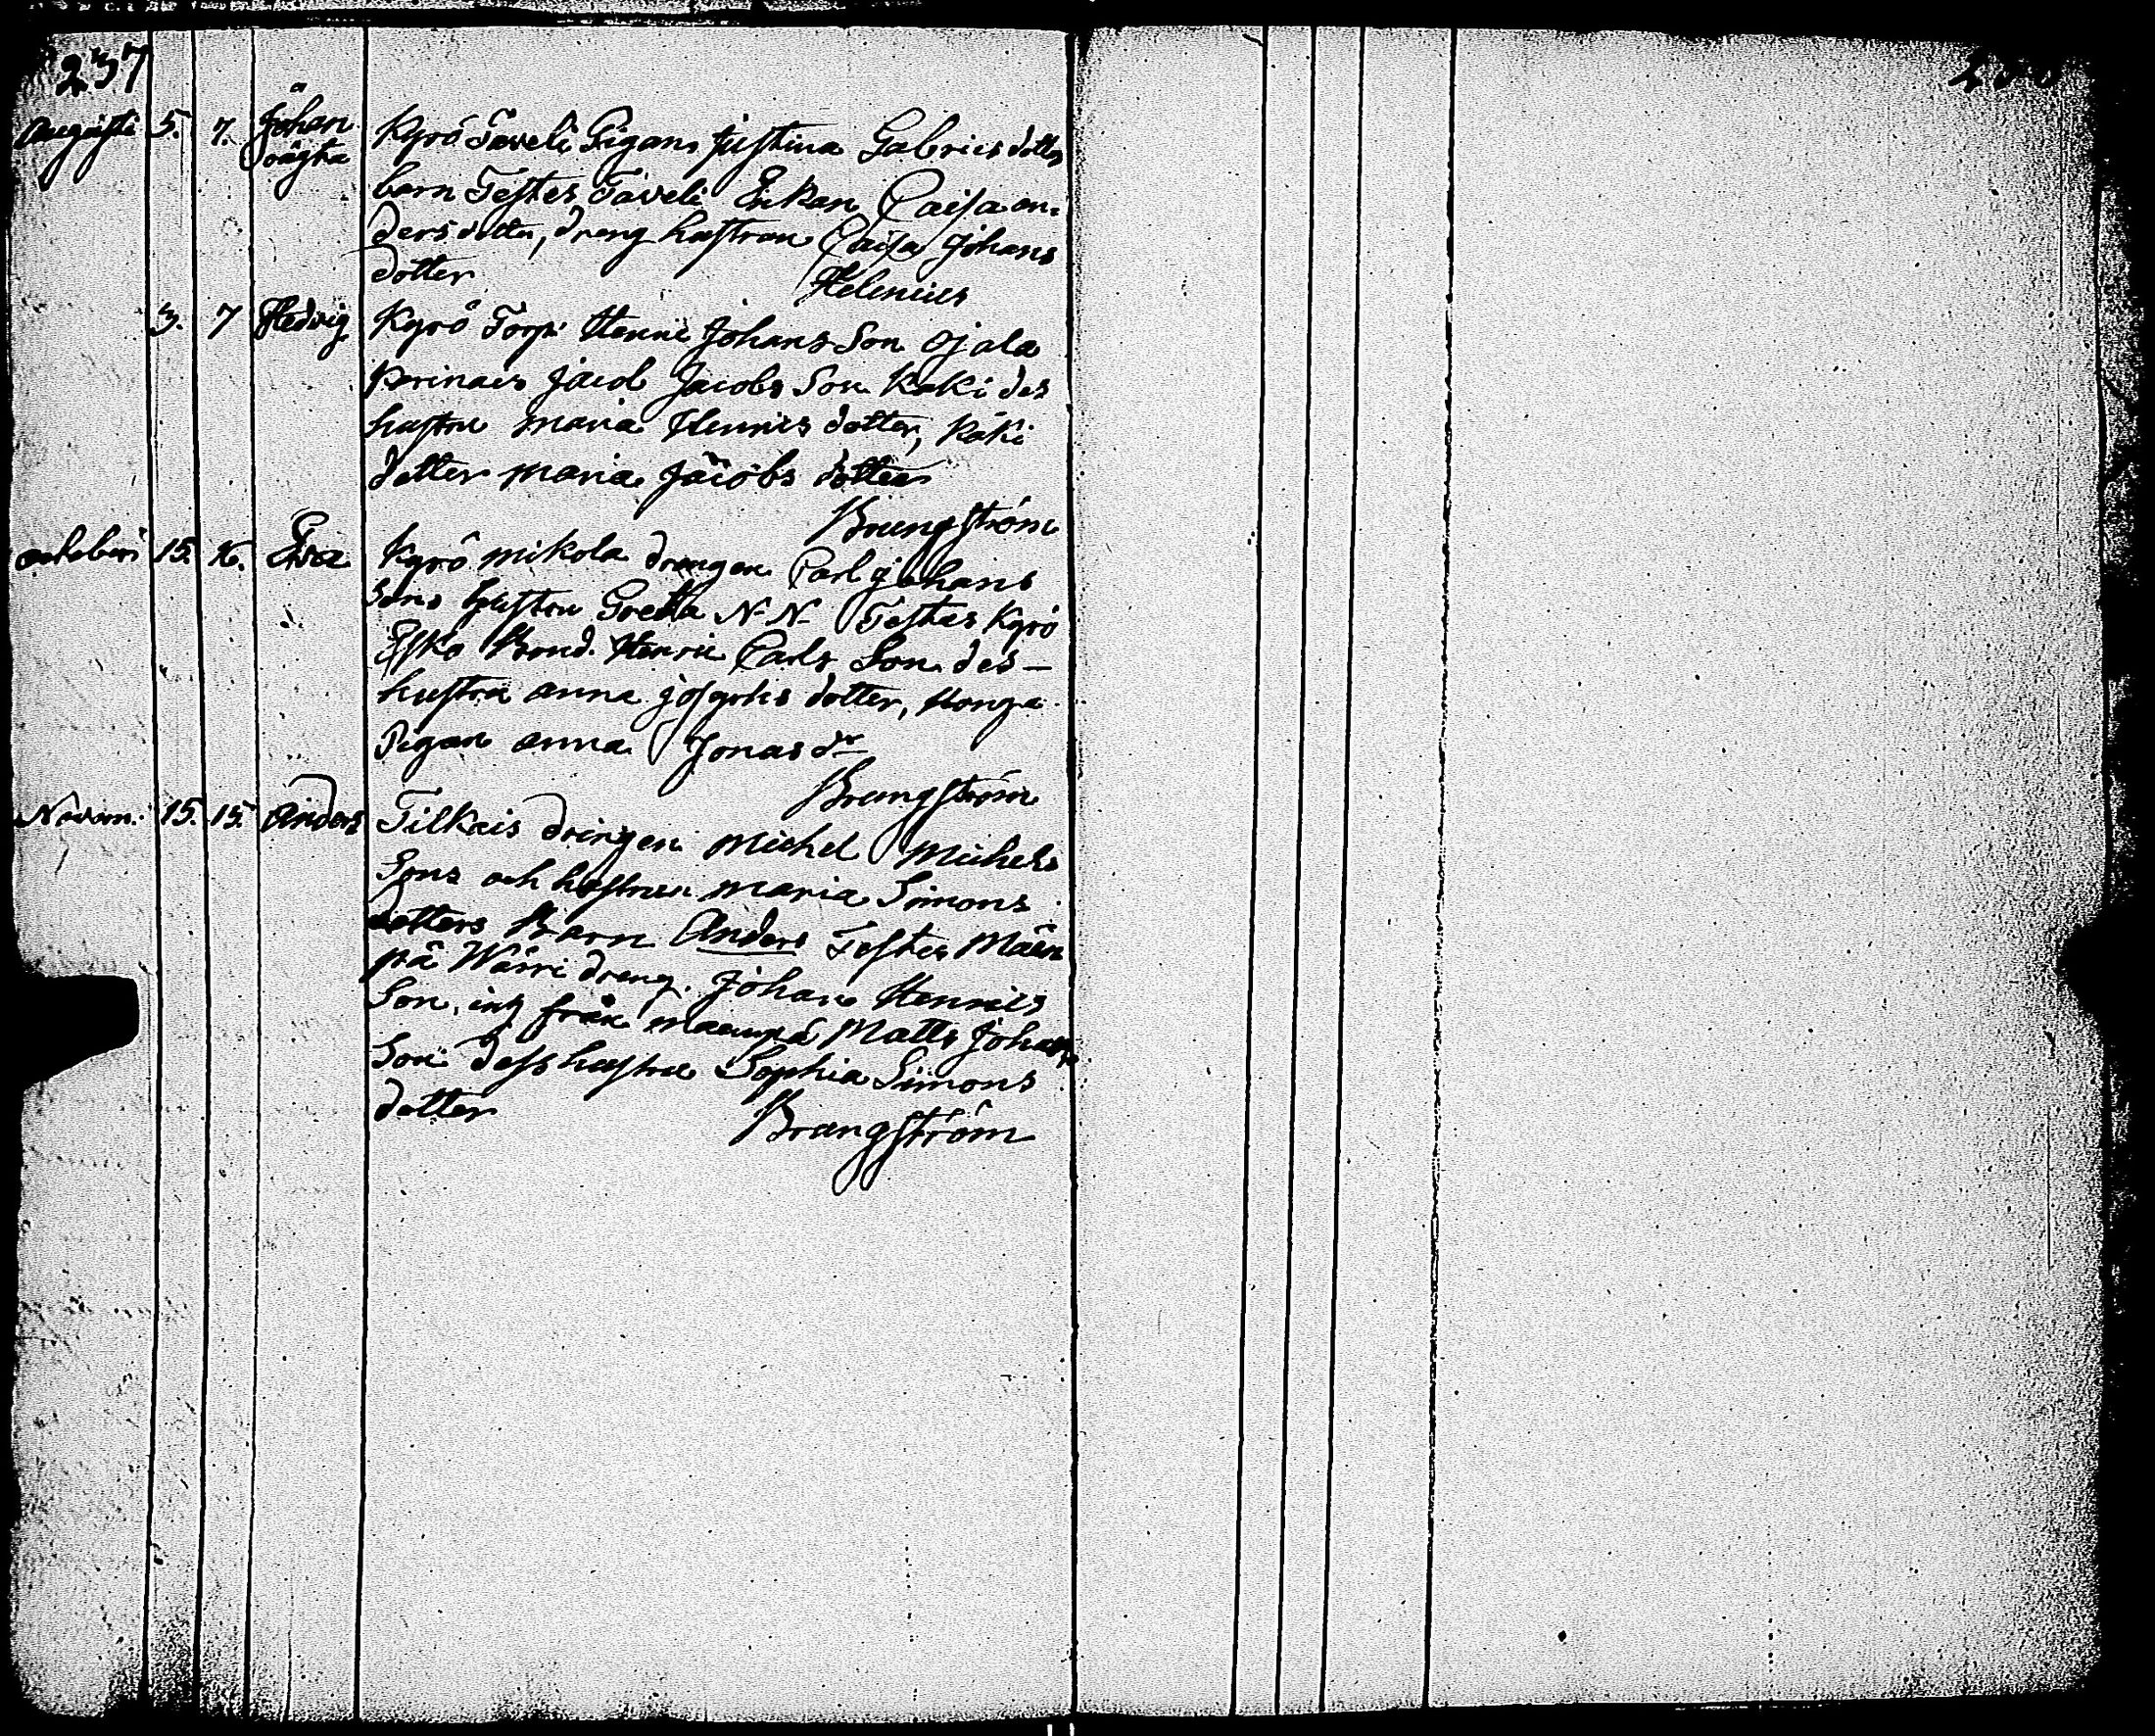 237
Augusti 5. 7. Johan oägta Kyrö Taveli Pigans Justina Gabriels dotters
barn Testes Taveli Enkan Caisa an-
dersdotter, dreng hustron Caisa Johans
dotter Helenius
3. 7 Hedvig Kyrö Torp. Henric Johans Son Ojala
Jacob Jacobs Son Kaki des
hustru Maria Henrics dotter, Käki
dotter Maria Jacobs dotter
Brungström
octobris 15. 16. Eva Kyrö mikola drengen Carl Johans
Sons hustru Greta N. N. Testes Kyrö
Esko Bond. Henric Carls Son des
hustru anna josephs dotter, Honga
Pigan anna Jonas dr
Brungström
Novem. 15. 15. Anders Tilkais drengen Michel Michels
Sons och hustrun maria Simons
dotters Barn Anders Testes Mäen
pä Wärri dreng. Johan Henrics
Son, från maenpä Matts Johans
Son dess hustru Sophia Simons
dotter Brungström